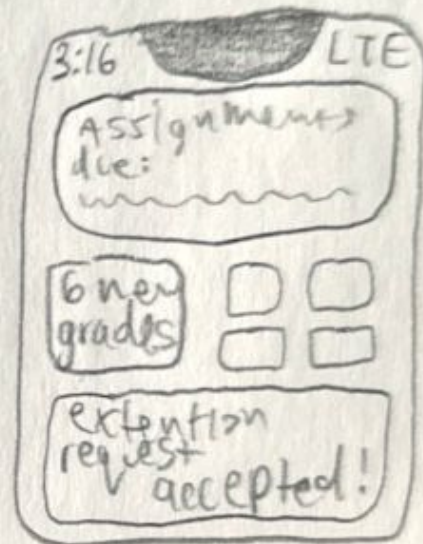 3:16 LTE
Assignments
due:
6 new
grades
extention
request
accepted!